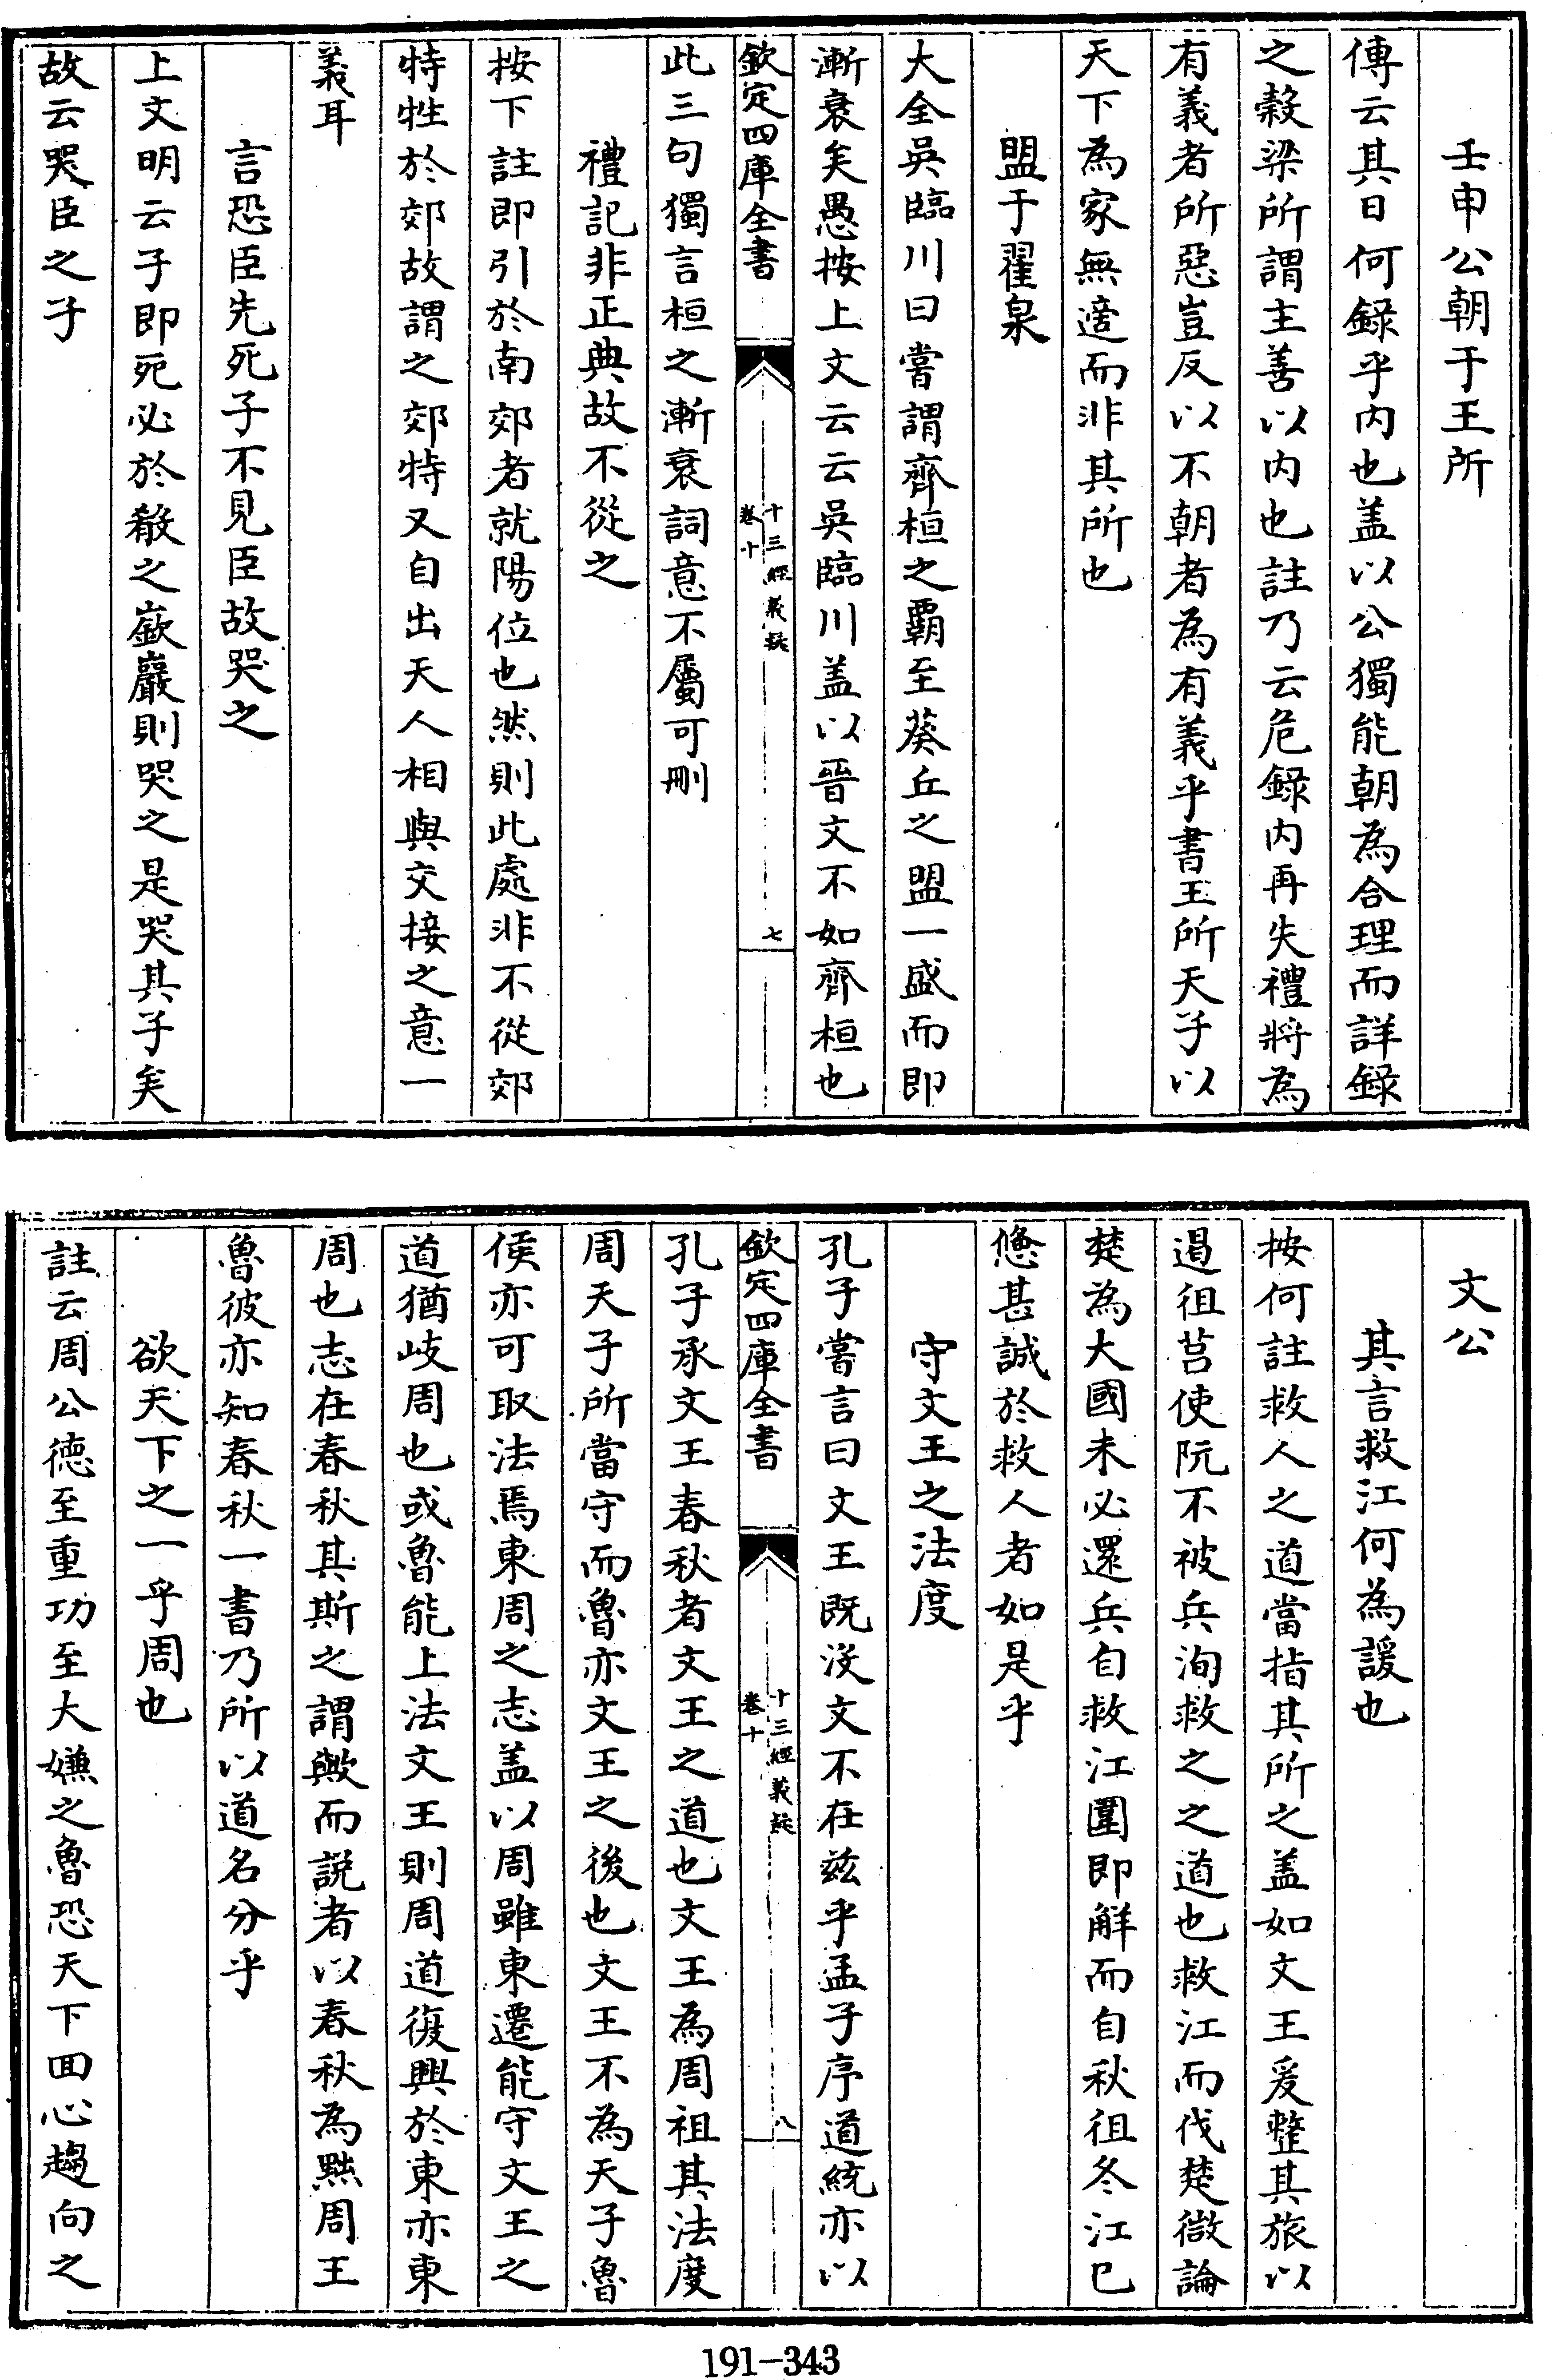 壬申公朝于王所
傳云其日何錄乎内也盖以公獨能朝為合理而詳錄
之穀梁所謂主善以内也註乃云危錄内再失禮將為
有義者所惡豈反以不朝者為有義乎書王所天子以
天下為家無適而非其所也
盟于翟泉
大全吳臨川曰嘗謂齊桓之霸至葵丘之盟一盛而即
漸衰矣愚按上文云云吳臨川盖以晉文不如齊桓也
欽定四庫全書
十三經義疑
卷十
七
此三句獨言桓之漸衰詞意不屬可刪
禮記非正典故不從之
按下註即引於南郊者就陽位也然則此處非不從郊
特牲於郊故謂之郊特又自出天人相與交接之意一
義耳
言恐臣先死子不見臣故哭之
上文明云子即死必於殽之嶔巖則哭之是哭其子矣
故云哭臣之子
文公
其言救江何為諼也
按何註救人之道當指其所之盖如文王爰整其旅以
遏徂莒使阮不被兵洵救之之道也救江而伐楚微論
楚為大國未必還兵自救江圍即解而自秋徂冬江已
憊甚誠於救人者如是乎
守文王之法度
孔子嘗言曰文王既沒文不在兹乎孟子序道統亦以
欽定四庫全書
十三經義疑
卷十
八
孔子承文王春秋者文王之道也文王為周祖其法度
周天子所當守而魯亦文王之後也文王不為天子魯
侯亦可取法焉東周之志盖以周雖東遷能守文王之
道猶岐周也或魯能上法文王則周道復興於東亦東
周也志在春秋其斯之謂歟而説者以春秋為黜周王
魯彼亦知春秋一書乃所以道名分乎
欲天下之一乎周也
註云周公德至重功至大嫌之魯恐天下囬心趨向之
191-343